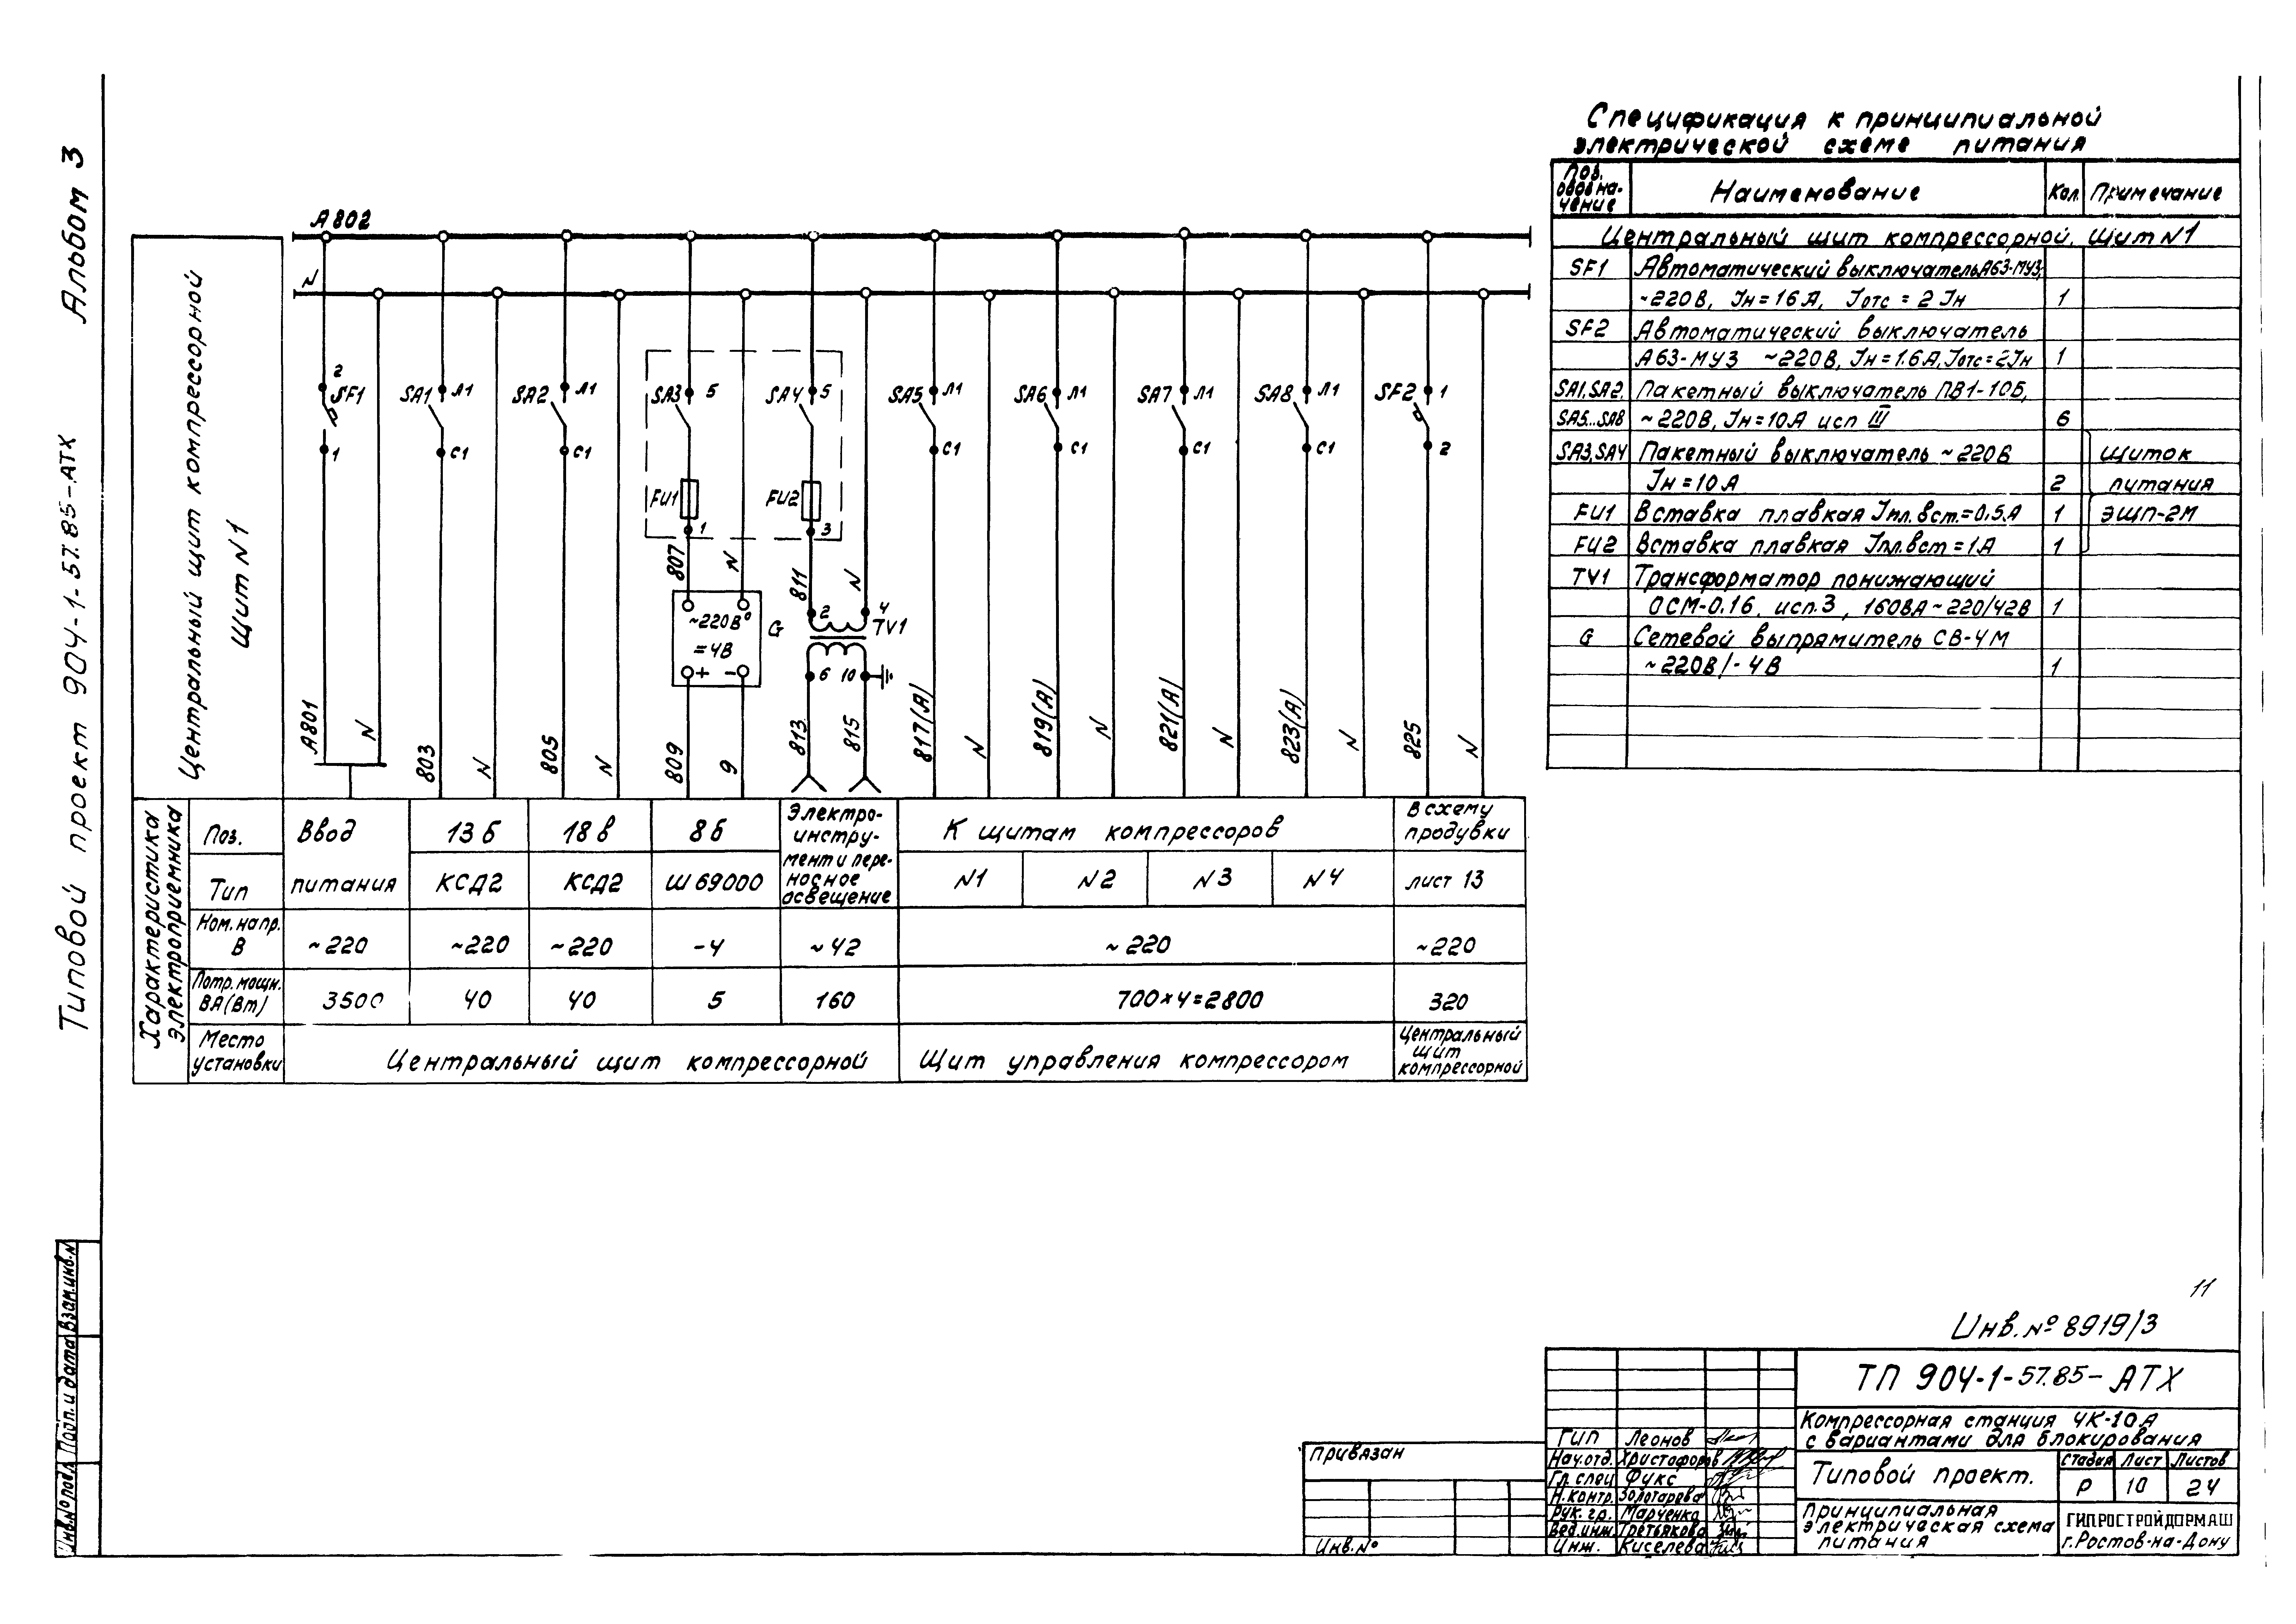 Альбом 3
Типовой проект 904-1-57.85-АТХ
Взам.инв.N
Подп. и дата
Инв.Nº подл.
Центральный щит компрессорной
Щит N1
А802
N
2
SF1
1
А801
N
SA1
Л1
С1
803
N
SA2
Л1
С1
805
N
SA3
5
FU1
1
807
N
~220В
=4В
+ -
G
809
9
SA4
5
FU2
3
811
N
2
4
TV1
6
10
813
815
SA5
Л1
С1
817(А)
N
SA6
Л1
С1
819(А)
N
SA7
Л1
С1
821(А)
N
SA8
Л1
С1
823(А)
N
SF2
1
2
825
N
Характеристика
электроприемника
Поз.
Ввод
питания
13б
18в
8б
Электро-
инстру-
мент и пере-
носное
освещение
К щитам компрессоров
В схему
продувки
Тип
КСД2
КСД2
Ш69000
N1
N2
N3
N4
лист 13
Ном. напр.
В
~220
~220
~220
-4
~42
~220
~220
Потр. мощн.
ВА (Вт)
3500
40
40
5
160
700×4=2800
320
Место
установки
Центральный щит компрессорной
Щит управления компрессором
Центральный
щит
компрессорной
Спецификация к принципиальной
электрической схеме питания
Поз.
обозна-
чение
Наименование
Кол.
Примечание
Центральный щит компрессорной. Щит N1
SF1 Автоматический выключатель А63-МУ3,
~220В, Iн=16А, Iотс = 2Iн 1
SF2 Автоматический выключатель
А63-МУ3 ~220В, Iн=1.6А, Iотс=2Iн 1
SA1,SA2, Пакетный выключатель ПВ1-10Б,
SA5...SA8 ~220В, Iн=10А исп III 6
SA3,SA4 Пакетный выключатель ~220В Щиток
Iн=10А 2 питания
FU1 Вставка плавкая Iпл.вст.=0,5А 1 ЭЩП-2М
FU2 Вставка плавкая Iпл.вст=1А 1
TV1 Трансформатор понижающий
ОСМ-0.16, исп.3, 160ВА ~220/42В 1
G Сетевой выпрямитель СВ-4М
~220В/-4В 1
11
Инв.Nº 8919/3
ТП 904-1-57.85-АТХ
Компрессорная станция 4К-10А
с вариантами для блокирования
Типовой проект.
Стадия Лист Листов
Р 10 24
Принципиальная
электрическая схема
питания
ГИПРОСТРОЙДОРМАШ
г.Ростов-на-Дону
ГИП Леонов
Нач.отд. Христофоров
Гр. спец Фукс
Н.контр. Золотарева
Рук. гр. Марченко
Вед.инж. Третьякова
Инж. Киселева
Привязан
Инв.Nº